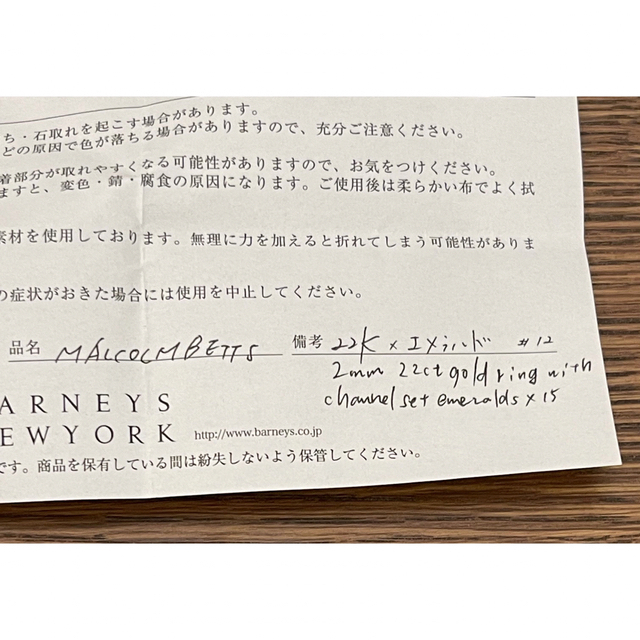 ち・石取れを起こす場合があります。
どの原因で色が落ちる場合がありますので、充分ご注意ください。
着部分が取れやすくなる可能性がありますので、お気をつけください。
ますと、変色・錆・腐食の原因になります。ご使用後は柔らかい布でよく拭
素材を使用しております。無理に力を加えると折れてしまう可能性がありま
の症状がおきた場合には使用を中止してください。
品名 MALCOLM BETTS 備考 22K × エメラルド #12
2mm 22ct gold ring with
channel set emeralds × 15
ARNEYS
EWYORK http://www.barneys.co.jp
です。商品を保有している間は紛失しないよう保管してください。